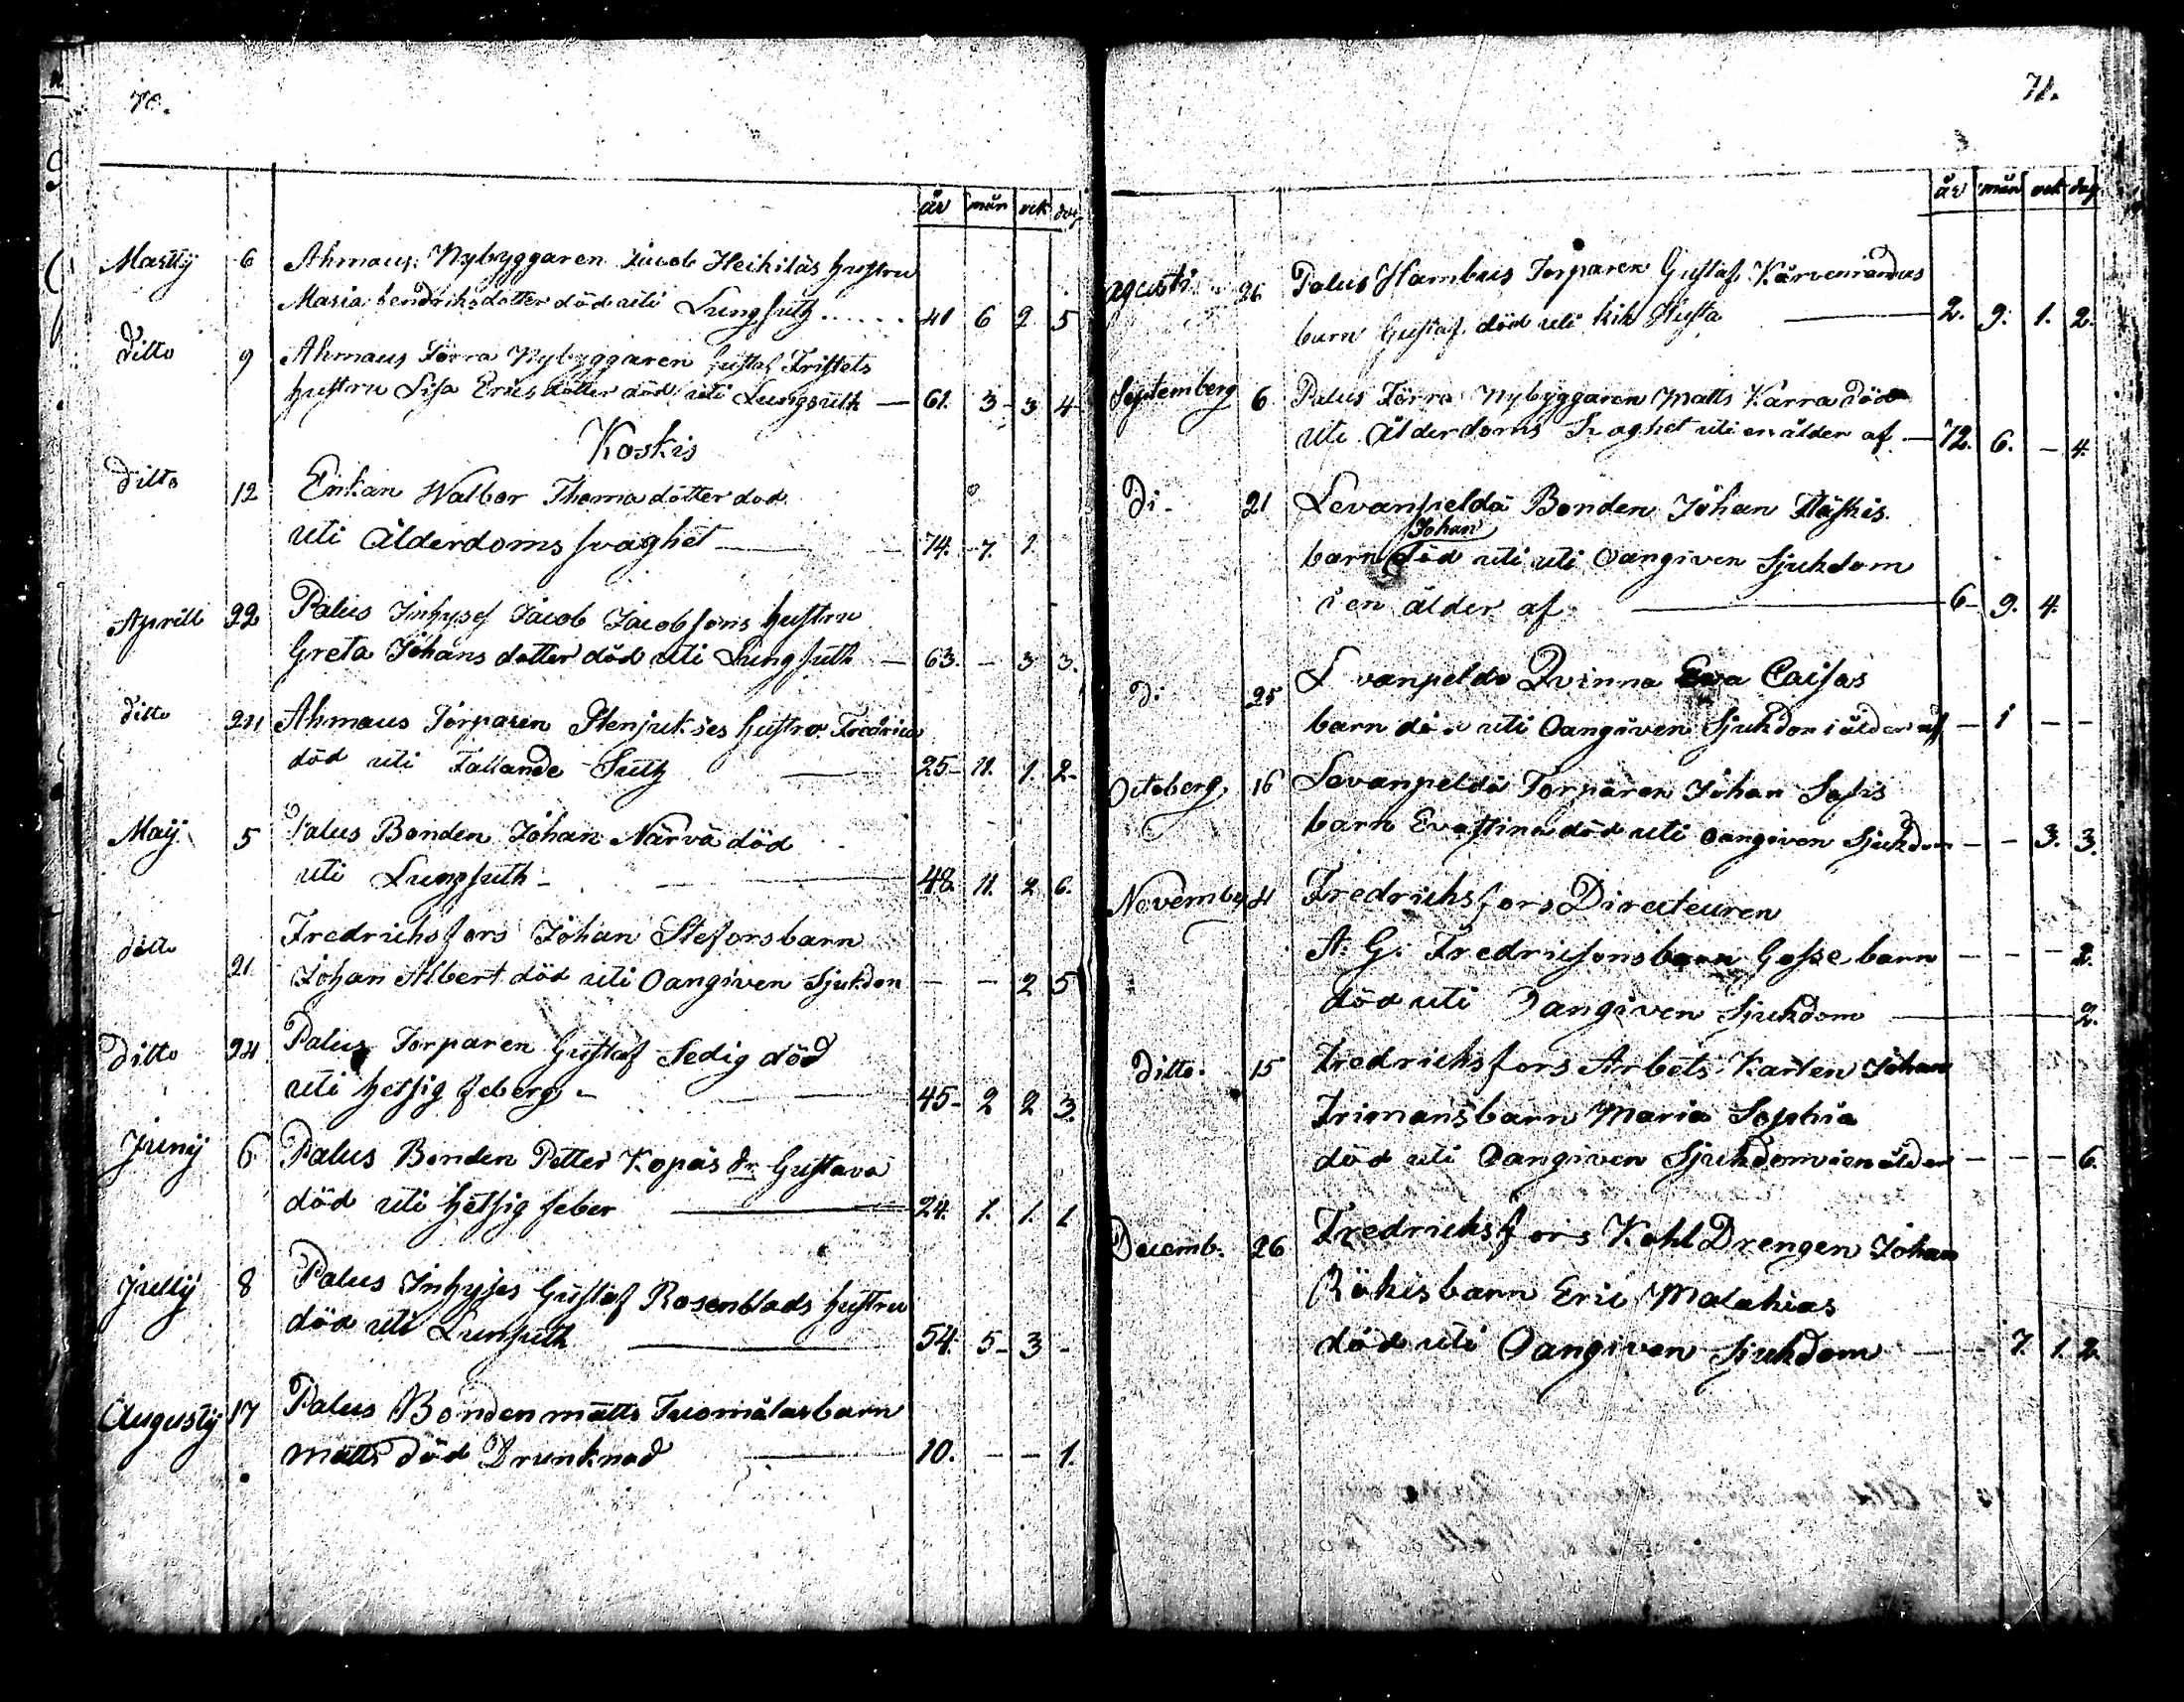 70.
år mån vek dag
Martij 6 Ahmaus Nybyggaren Jacob Heikiläs hustru
Maria hendriksdotter död uti Lungsutz 41 6 2 5
Ditto 9 Ahmaus Törra Nybyggaren Gustaf Tristets
hustru Lisa Ericsdotter död uti Lungsuth — 61. 3 - 3 4
Koskis
Ditto 12 Enkan Walbor Thomadotter död
uti Ålderdoms svaghet — 74. 7. 1.
Aprill 22 Palus Inhyses Jacob Jacobsons hustru
Greta Johans dotter död uti Lungsuth — 63. — 3 3.
ditto 24 Ahmaus Torparen Stenjukses hustru Fredrica
död uti Fallande Sutz — 25- 11. 1. 2-
Maij 5 Palus Bonden Johan Närvä död
uti Lungsuth — 48. 11. 2 6.
ditto 21 Fredrichsfors Johan Steforsbarn
Johan Albert död uti Oangiven Sjukdon — — 2 5
Ditto 24 Palus Torparen Gustaf Sedig död
uti hetsig feberg — 45- 2 2 3.
Junij 6 Palus Bonden Petter Kopäs dr Gustava
död uti hetsig feber — 24. 1. 1. 1
Jullij 8 Palus Inhyses Gustaf Rosenblads hustru
död uti Lunsuth — 54. 5- 3 -
Augustij 17 Palus Bonden matts Tuomälas barn
matts död Drunknad — 10. — — 1.
71.
år mån vek dag
agusti 26 Palus Hambus Torparen Gustaf Kärvenrandus
barn Gustaf död uti kik Husta — 2. 9. 1. 2.
Septemberg 6 Palus Törra Nybyggaren Matts Karra död
uti Ålderdoms Svaghet uti en ålder af — 72. 6. — 4.
Di- 21 Levanpelda Bonden Johan Häskis
Johan
barn död uti uti Oangiven Sjukdom
i en ålder af — 6- 9. 4.
Di 25 Levanpeldo Qvinna Eva Caisas
barn död uti Oangiven Sjukdom i ålder af — 1 — —
Octoberg 16 Levanpeldä Torparen Johan Safis
barn Evastina död uti oangiven Sjukdom — — 3. 3.
Novemb 4 Fredrichsfors Directeuren
A. G. Fredricsons barn Gosse barn — — — 2.
död uti Oangiven Sjukdom — 2.
Ditto. 15 Fredrichsfors Arbets Karlen Johan
Frimans barn Maria Sophia
död uti Oangiven Sjukdom i en ålder — — — 6.
Decemb. 26 Fredrichsfors Kohl Drengen Johan
Rökis barn Eric Malakias
död uti Oangiven Sjukdom — 7. 1. 2.